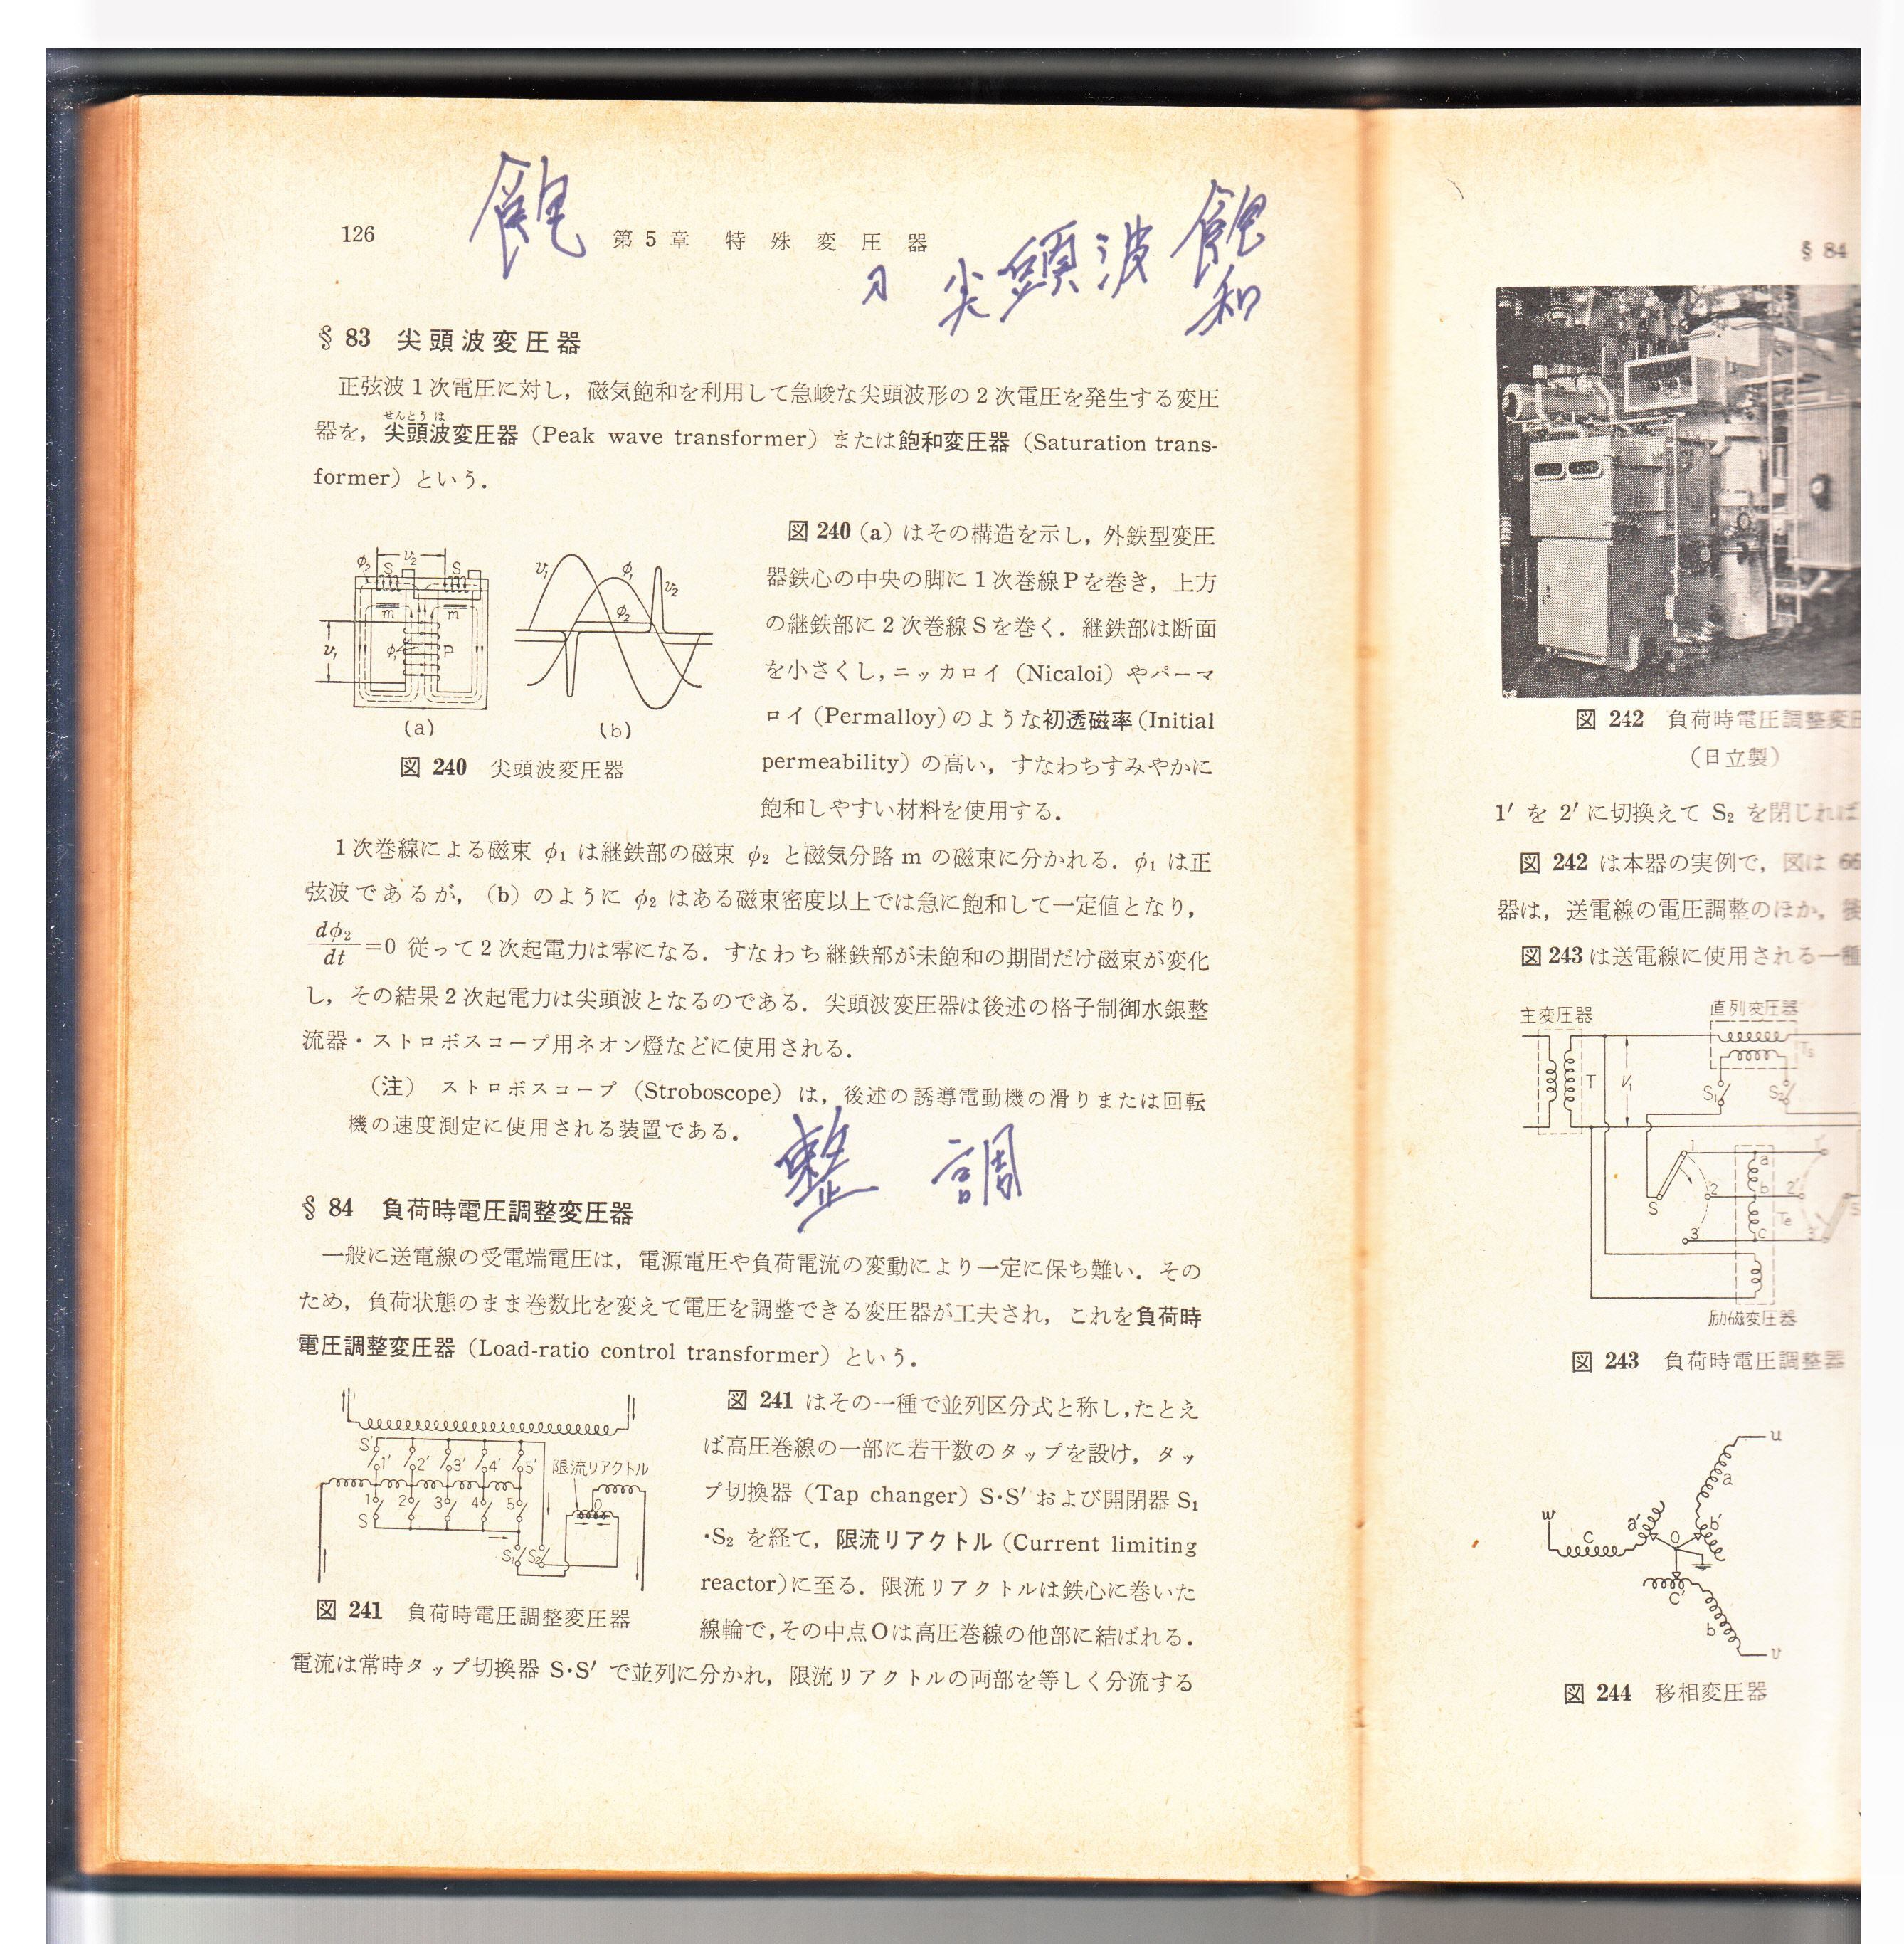 飽
126 第5章 特殊変圧器
尖頭波 飽
和
§ 83 尖頭波変圧器
正弦波1次電圧に対し，磁気飽和を利用して急峻な尖頭波形の2次電圧を発生する変圧
せんとう は
器を，尖頭波変圧器（Peak wave transformer）または飽和変圧器（Saturation trans-
former）という．
図 240 (a) はその構造を示し，外鉄型変圧
器鉄心の中央の脚に1次巻線Pを巻き，上方
の継鉄部に2次巻線Sを巻く．継鉄部は断面
を小さくし，ニッカロイ（Nicaloi）やパーマ
ロイ（Permalloy）のような初透磁率（Initial
permeability）の高い，すなわちすみやかに
飽和しやすい材料を使用する．
φ2 S v2 S
m m
v1 φ1 P
(a)
v1 φ1 v2
φ2
(b)
図 240 尖頭波変圧器
1次巻線による磁束 φ1 は継鉄部の磁束 φ2 と磁気分路 m の磁束に分かれる．φ1 は正
弦波であるが，(b) のように φ2 はある磁束密度以上では急に飽和して一定値となり，
dφ2/dt=0 従って2次起電力は零になる．すなわち継鉄部が未飽和の期間だけ磁束が変化
し，その結果2次起電力は尖頭波となるのである．尖頭波変圧器は後述の格子制御水銀整
流器・ストロボスコープ用ネオン燈などに使用される．
（注） ストロボスコープ（Stroboscope）は，後述の誘導電動機の滑りまたは回転
機の速度測定に使用される装置である．
整 調
§ 84 負荷時電圧調整変圧器
一般に送電線の受電端電圧は，電源電圧や負荷電流の変動により一定に保ち難い．その
ため，負荷状態のまま巻数比を変えて電圧を調整できる変圧器が工夫され，これを負荷時
電圧調整変圧器（Load-ratio control transformer）という．
図 241 はその一種で並列区分式と称し，たとえ
ば高圧巻線の一部に若干数のタップを設け，タッ
プ切換器（Tap changer）S・S′ および開閉器 S1
・S2 を経て，限流リアクトル（Current limiting
reactor）に至る．限流リアクトルは鉄心に巻いた
線輪で，その中点Oは高圧巻線の他部に結ばれる．
S′ 1′ 2′ 3′ 4′ 5′ 限流リアクトル
1 2 3 4 5 O
S
S1 S2
図 241 負荷時電圧調整変圧器
電流は常時タップ切換器 S・S′ で並列に分かれ，限流リアクトルの両部を等しく分流する
§ 84
図 242 負荷時電圧調整変圧
（日立製）
1′ を 2′ に切換えて S2 を閉じれば
図 242 は本器の実例で，図は 66
器は，送電線の電圧調整のほか，後
図 243 は送電線に使用される一種
主変圧器 直列変圧器
Ts
T V1 S1 S2
1 a 1′
2 b 2′
S Te S
3 c 3′
励磁変圧器
図 243 負荷時電圧調整器
u
a
w a′ b′
c O
c′
b
v
図 244 移相変圧器